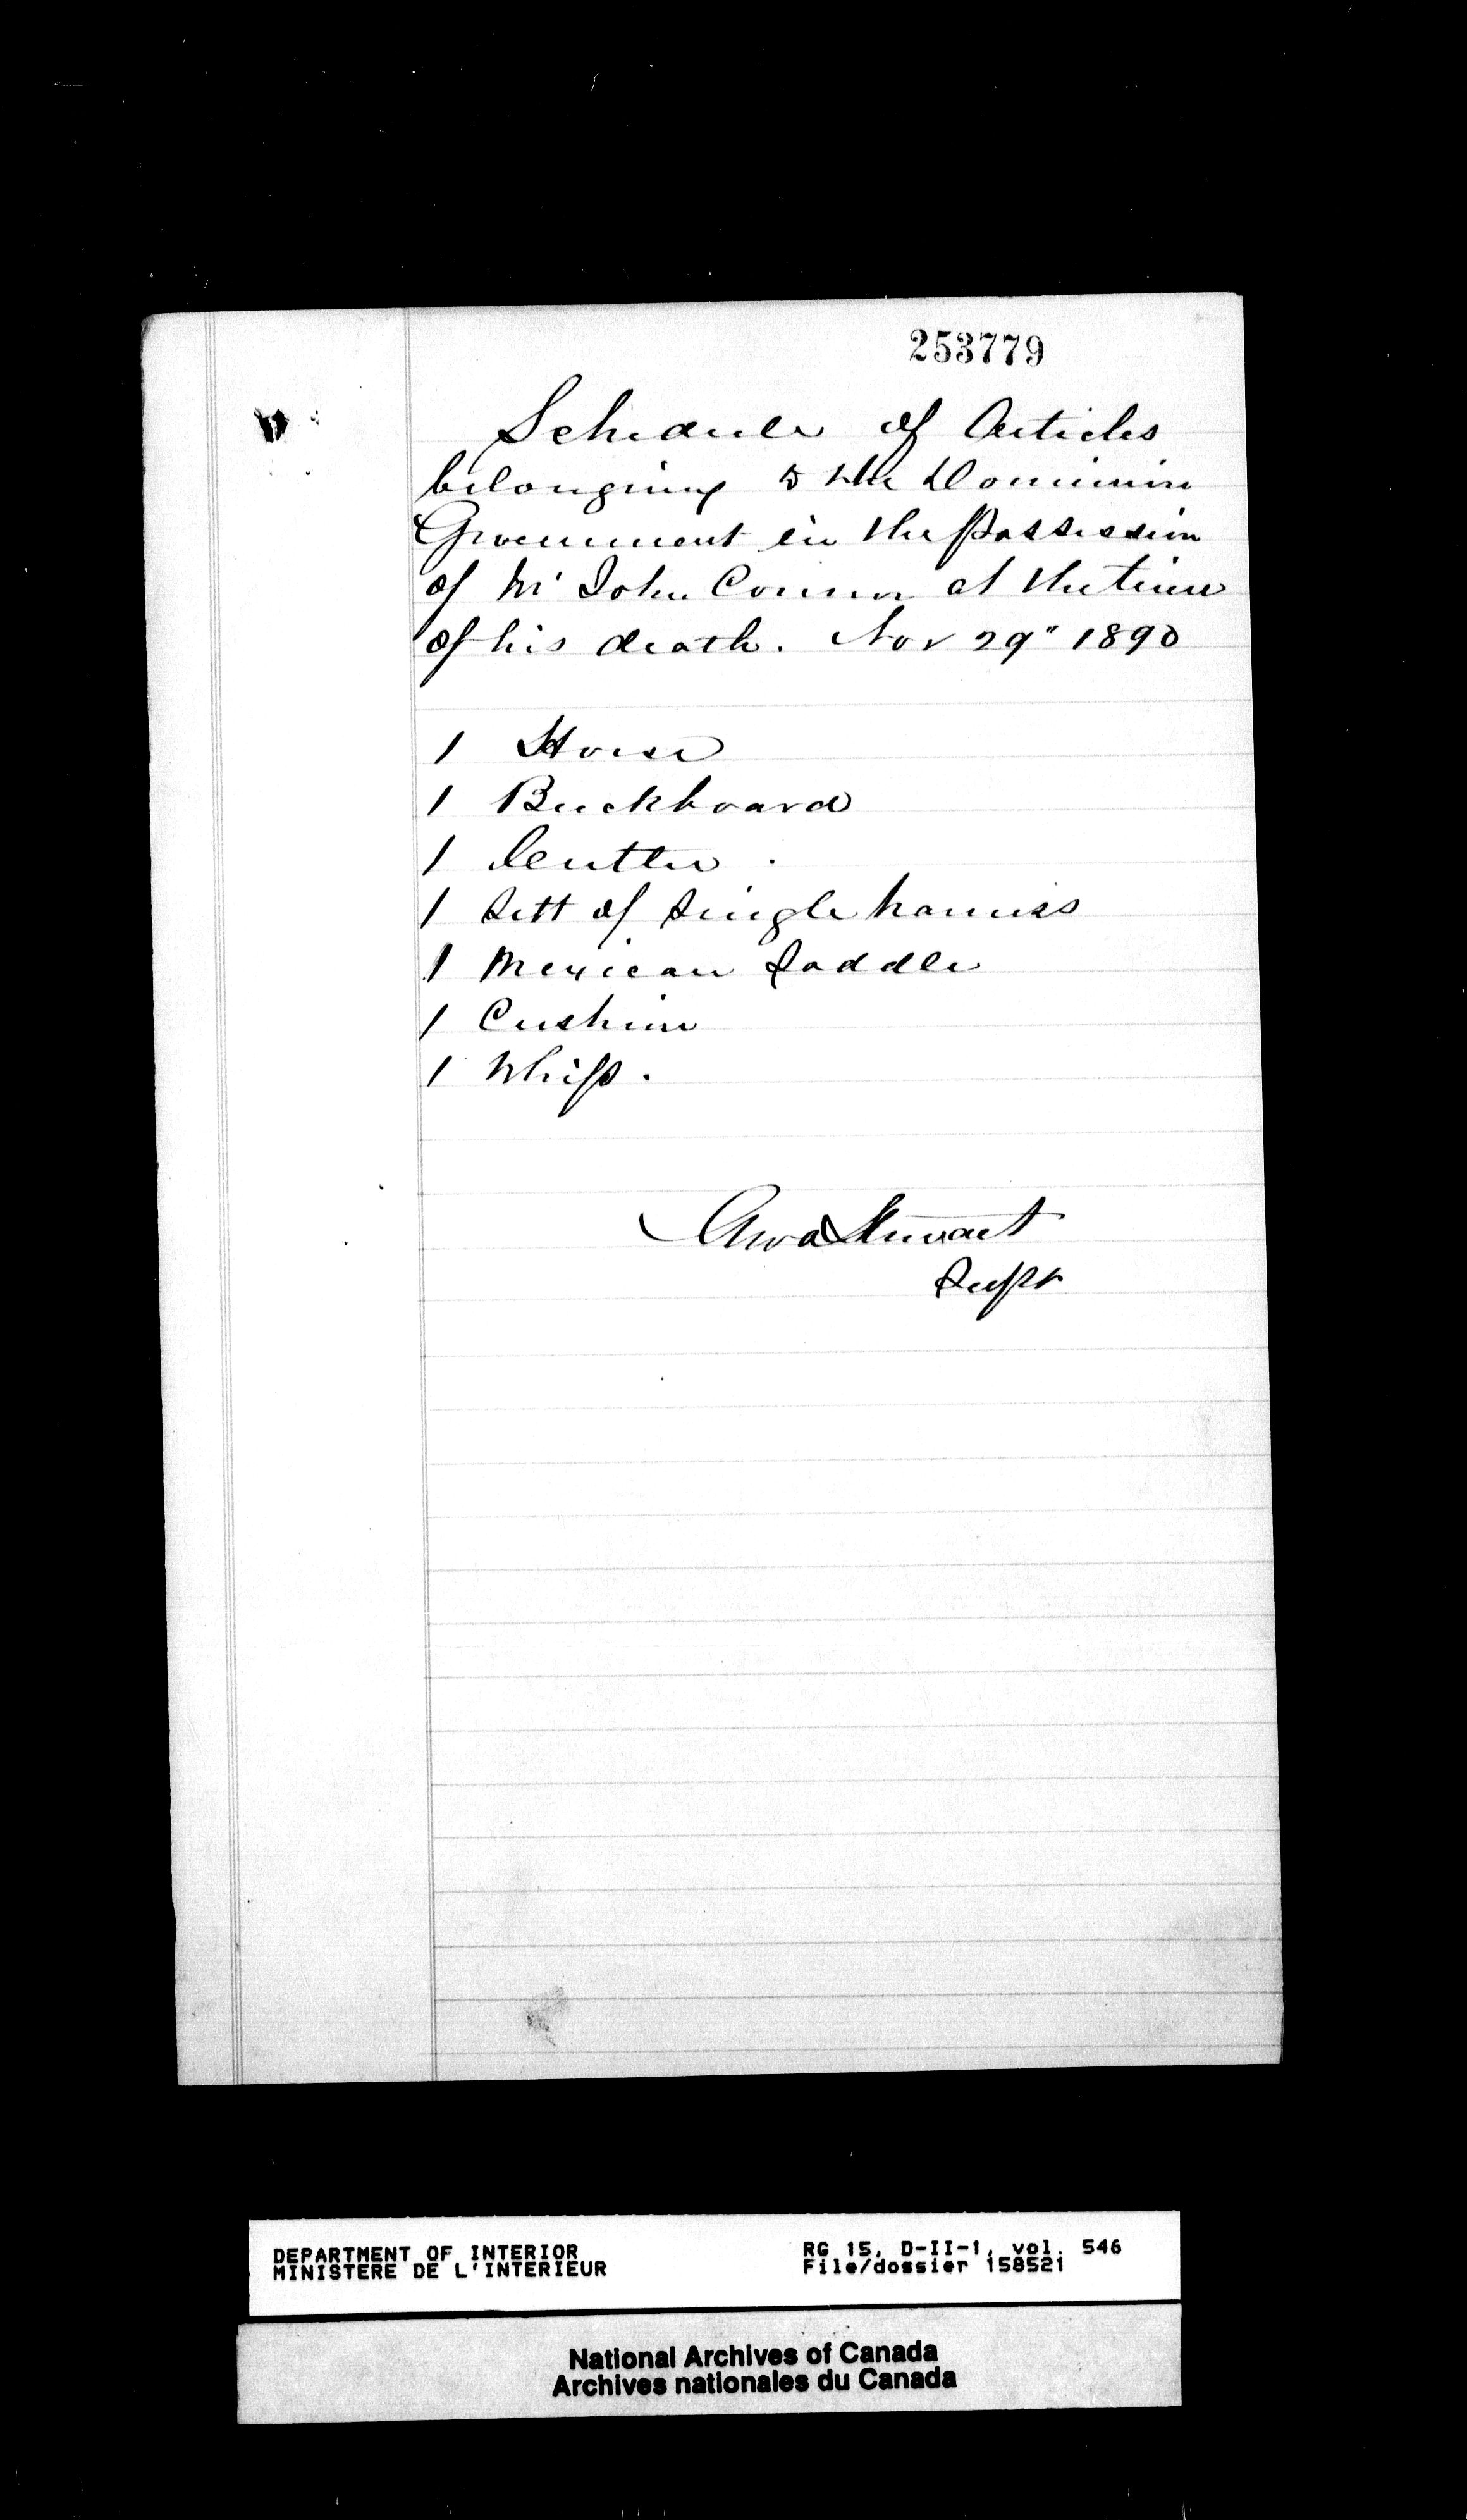 253779
Schedule of Articles
belonging to the Dominion
Government in the possession
of Mr John Connor at the time
of his death. Nov 29" 1890
1 Horse
1 Buckboard
1 Cutter.
1 Sett of Single harness
1 Mexican Saddle
1 Cushion
1 Whip.
Stewart
Supt
DEPARTMENT OF INTERIOR
MINISTERE DE L'INTERIEUR
RG 15, D-II-1, vol. 546
File/dossier 158521
National Archives of Canada
Archives nationales du Canada